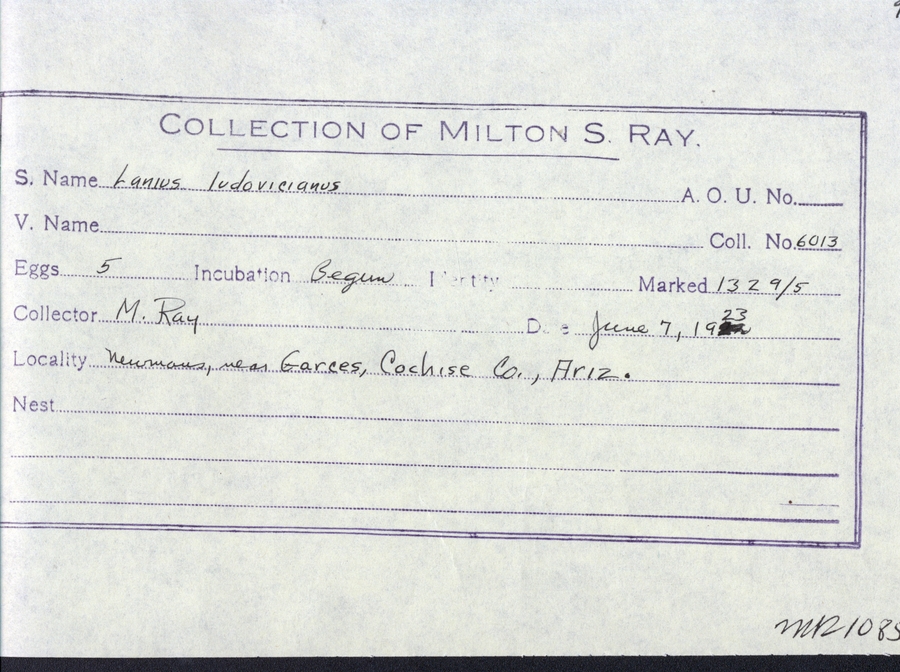 COLLECTION OF MILTON S. RAY.
S. Name Lanius ludovicianus A. O. U. No.
V. Name Coll. No. 6013
Eggs 5 Incubation Begun Marked 1329/5
Collector M. Ray June 7, 1923
Locality Newmans, near Garces, Cochise Co., Ariz.
Nest